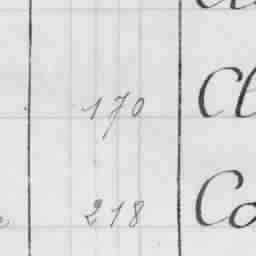 170 Cl
218 Co